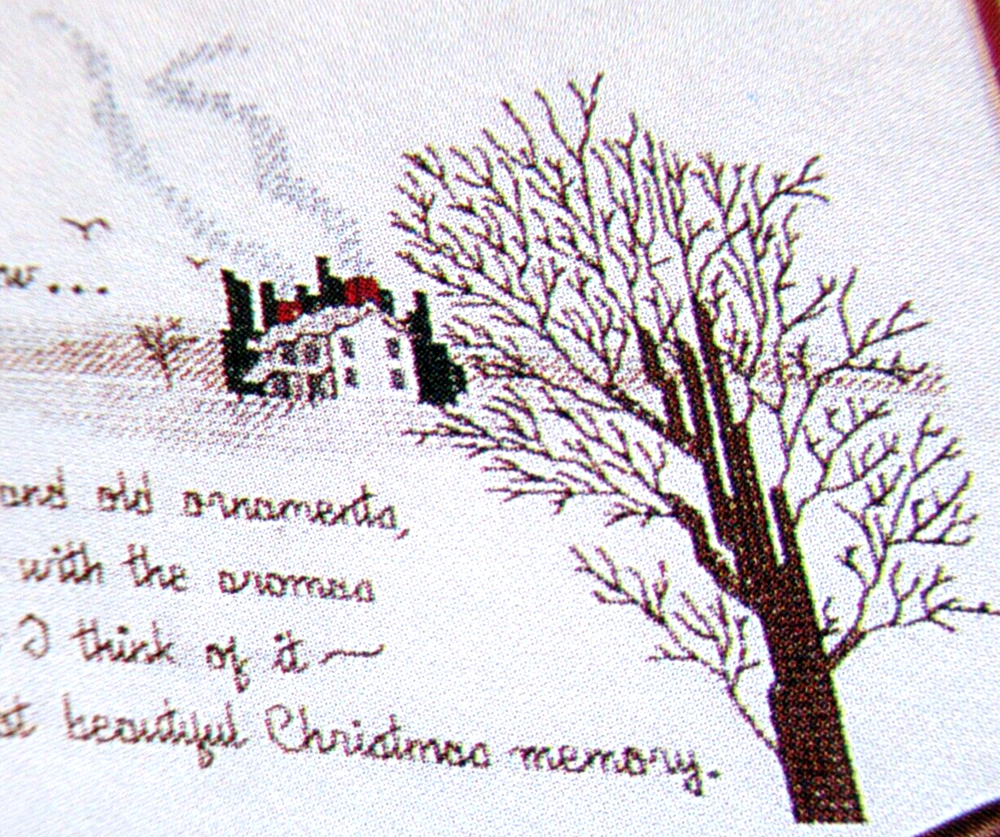 w...
and old ornaments,
with the aromas
I think of it ~
st beautiful Christmas memory.